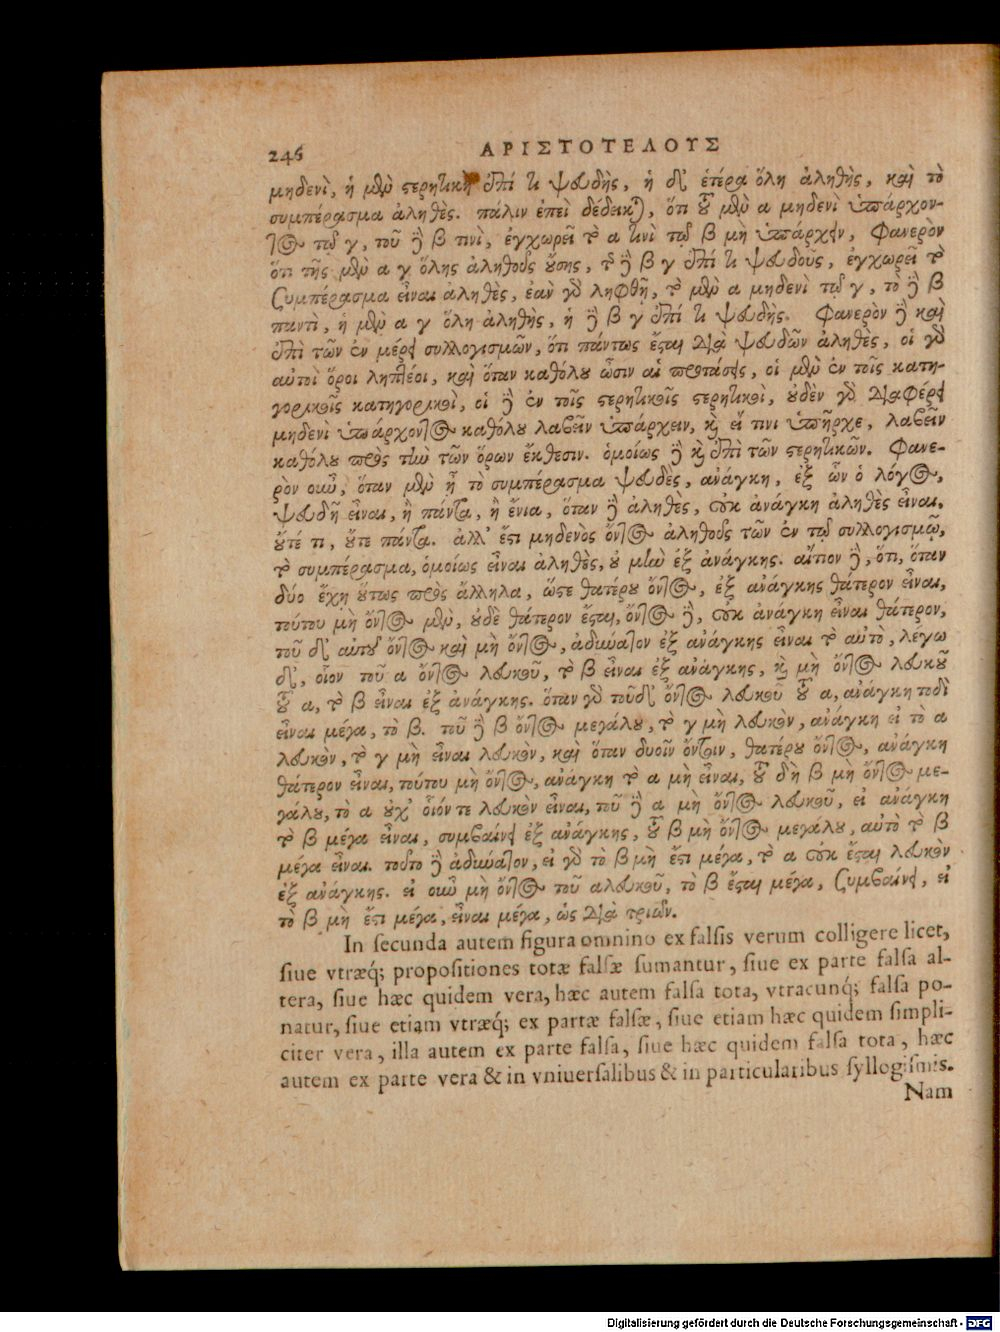 246 ΑΡΙΣΤΟΤΕΛΟΥΣ
μηδενὶ, ἡ μὲν στερητικὴ ἐπί τι ψευδὴς, ἡ δ' ἑτέρα ὅλη ἀληθὴς, καὶ τὸ
συμπέρασμα ἀληθὲς. πάλιν ἐπεὶ δέδεικται, ὅτι τοῦ μὲν α μηδενὶ ὑπάρχον-
τος τῷ γ, τοῦ δὲ β τινὶ, ἐγχωρεῖ τὸ α τινὶ τῷ β μὴ ὑπάρχειν, Φανερὸν
ὅτι τῆς μὲν α γ ὅλης ἀληθοῦς οὔσης, τῆς δὲ β γ ἐπί τι ψευδοῦς, ἐγχωρεῖ τὸ
συμπέρασμα εἶναι ἀληθὲς, ἐὰν γὰρ ληφθῇ, τὸ μὲν α μηδενὶ τῷ γ, τὸ δὲ β
παντὶ, ἡ μὲν α γ ὅλη ἀληθὴς, ἡ δὲ β γ ἐπί τι ψευδὴς. Φανερὸν δὲ καὶ
ἐπὶ τῶν ἐν μέρει συλλογισμῶν, ὅτι πάντως ἔσται διὰ ψευδῶν ἀληθὲς, οἱ γὰρ
αὐτοὶ ὅροι ληπτέοι, καὶ ὅταν καθόλου ὦσιν αἱ προτάσεις, οἱ μὲν ἐν τοῖς κατη-
γορικοῖς κατηγορικοὶ, οἱ δὲ ἐν τοῖς στερητικοῖς στερητικοὶ, οὐδὲν γὰρ διαφέρει
μηδενὶ ὑπάρχοντος καθόλου λαβεῖν ὑπάρχειν, καὶ εἴ τινι ὑπῆρχε, λαβεῖν
καθόλου πρὸς τὴν τῶν ὅρων ἔκθεσιν. ὁμοίως δὲ καὶ ἐπὶ τῶν στερητικῶν. Φανε-
ρὸν οὖν, ὅταν μὲν ᾖ τὸ συμπέρασμα ψευδὲς, ἀνάγκη, ἐξ ὧν ὁ λόγος,
ψευδῆ εἶναι, ἢ πάντα, ἢ ἔνια, ὅταν δὲ ἀληθὲς, οὐκ ἀνάγκη ἀληθὲς εἶναι,
οὔτέ τι, οὔτε πάντα. ἀλλ' ἔστι μηδενὸς ὄντος ἀληθοῦς τῶν ἐν τῷ συλλογισμῷ,
τὸ συμπέρασμα, ὁμοίως εἶναι ἀληθὲς, οὐ μὴν ἐξ ἀνάγκης. αἴτιον δὲ, ὅτι, ὅταν
δύο ἔχῃ οὕτως πρὸς ἄλληλα, ὥστε θατέρου ὄντος, ἐξ ἀνάγκης θάτερον εἶναι,
τούτου μὴ ὄντος μὲν, οὐδὲ θάτερον ἔσται, ὄντος δὲ, οὐκ ἀνάγκη εἶναι θάτερον,
τοῦ δ' αὐτοῦ ὄντος καὶ μὴ ὄντος, ἀδύνατον ἐξ ἀνάγκης εἶναι τὸ αὐτὸ, λέγω
δ', οἷον τοῦ α ὄντος λευκοῦ, τὸ β εἶναι ἐξ ἀνάγκης, καὶ μὴ ὄντος λευκοῦ
τοῦ α, τὸ β εἶναι ἐξ ἀνάγκης. ὅταν γὰρ τοῦδ' ὄντος λευκοῦ τοῦ α, ἀνάγκη τοδὶ
εἶναι μέγα, τὸ β. τοῦ δὲ β ὄντος μεγάλου, τὸ γ μὴ λευκὸν, ἀνάγκη εἰ τὸ α
λευκὸν, τὸ γ μὴ εἶναι λευκὸν, καὶ ὅταν δυοῖν ὄντοιν, θατέρου ὄντος, ἀνάγκη
θάτερον εἶναι, τούτου μὴ ὄντος, ἀνάγκη τὸ α μὴ εἶναι, τοῦ δὴ β μὴ ὄντος με-
γάλου, τὸ α οὐχ' οἷόν τε λευκὸν εἶναι, τοῦ δὲ α μὴ ὄντος λευκοῦ, εἰ ἀνάγκη
τὸ β μέγα εἶναι, συμβαίνει ἐξ ἀνάγκης, τοῦ β μὴ ὄντος μεγάλου, αὐτὸ τὸ β
μέγα εἶναι. τοῦτο δὲ ἀδύνατον, εἰ γὰρ τὸ β μὴ ἔστι μέγα, τὸ α οὐκ ἔσται λευκὸν
ἐξ ἀνάγκης. εἰ οὖν μὴ ὄντος τοῦ α λευκοῦ, τὸ β ἔσται μέγα, συμβαίνει, εἰ
τὸ β μὴ ἔστι μέγα, εἶναι μέγα, ὡς διὰ τριῶν.
In secunda autem figura omnino ex falsis verum colligere licet,
siue vtræq; propositiones totæ falsæ sumantur, siue ex parte falsa al-
tera, siue hæc quidem vera, hæc autem falsa tota, vtracunq; falsa po-
natur, siue etiam vtræq; ex partæ falsæ, siue etiam hæc quidem simpli-
citer vera, illa autem ex parte falsa, siue hæc quidem falsa tota, hæc
autem ex parte vera & in vniuersalibus & in particularibus syllogismis.
Nam
Digitalisierung gefördert durch die Deutsche Forschungsgemeinschaft - DFG